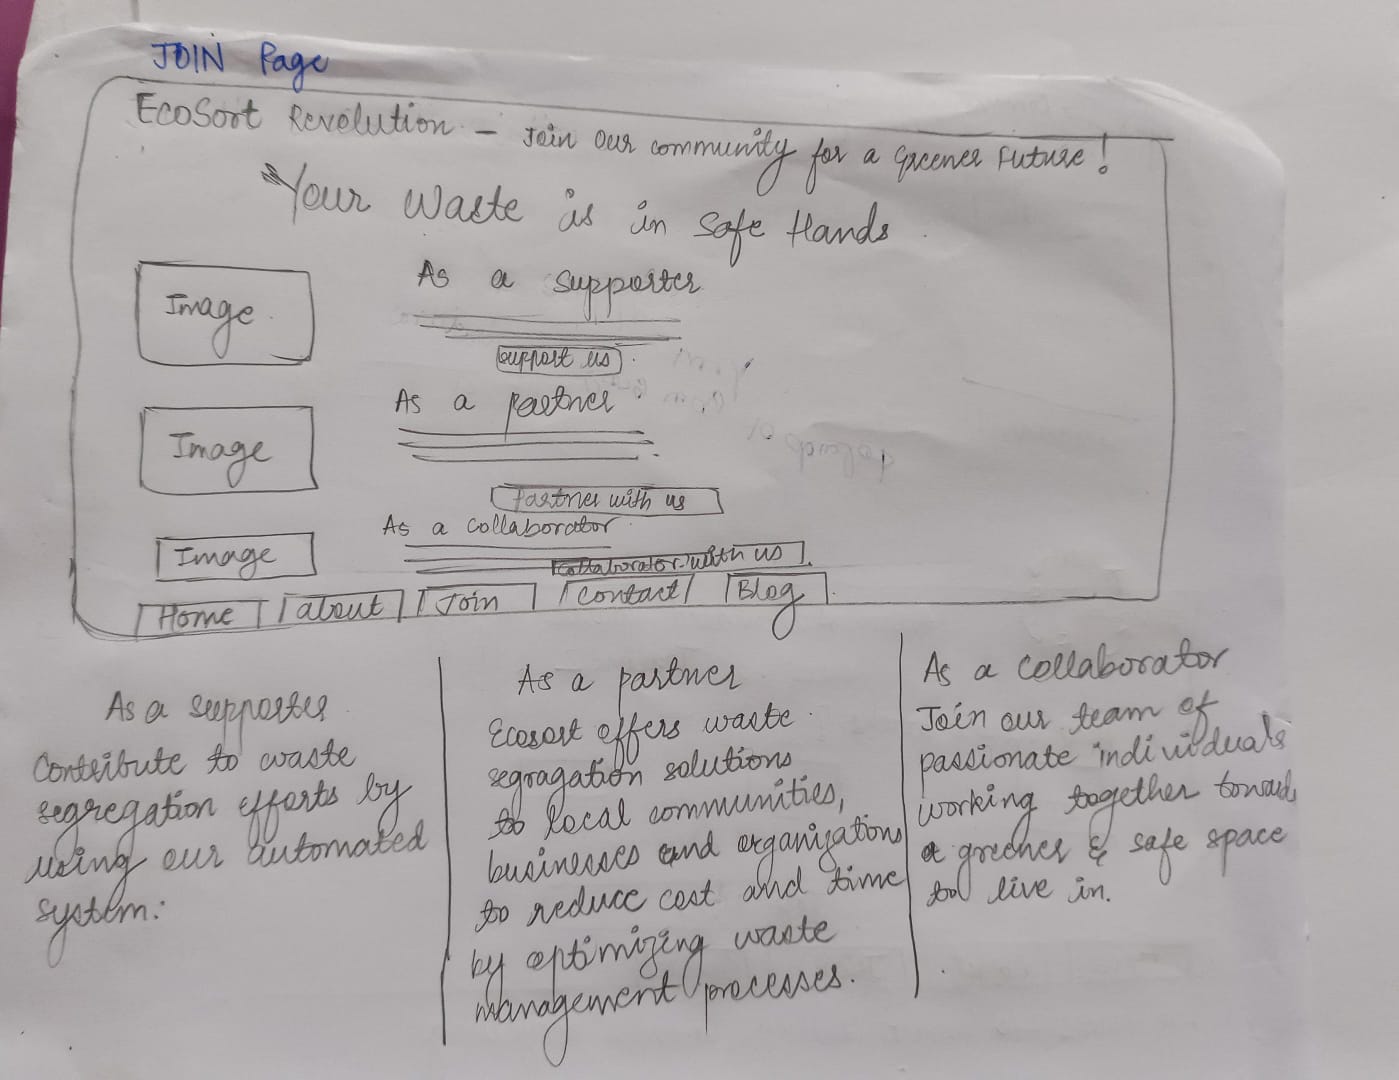 JOIN Page
EcoSort Revolution - Join our community for a Greener Future!
Your Waste is in Safe Hands
Image
As a supporter
Support us
Image
As a partner
Partner with us
Image
As a collaborator
Collaborator with us
Home about Join Contact Blog
As a supporter
Contribute to waste
segregation efforts by
using our automated
system.
As a partner
Ecosort offers waste
segragation solutions
to local communities,
businesses and organizations
to reduce cost and time
by optimizing waste
management processes.
As a collaborator
Join our team of
passionate individuals
working together towards
a greener & safe space
to live in.